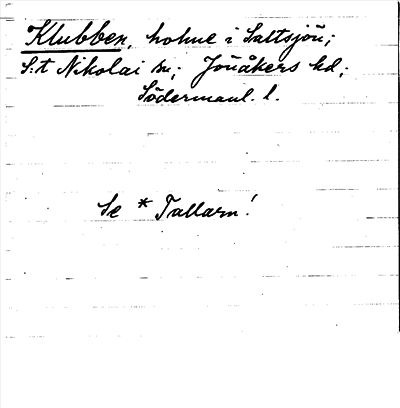 Klubben, holme i Saltsjön;
S:t Nikolai sn; Jönåkers hd;
Södermanl. l.
Se * Tallarn!